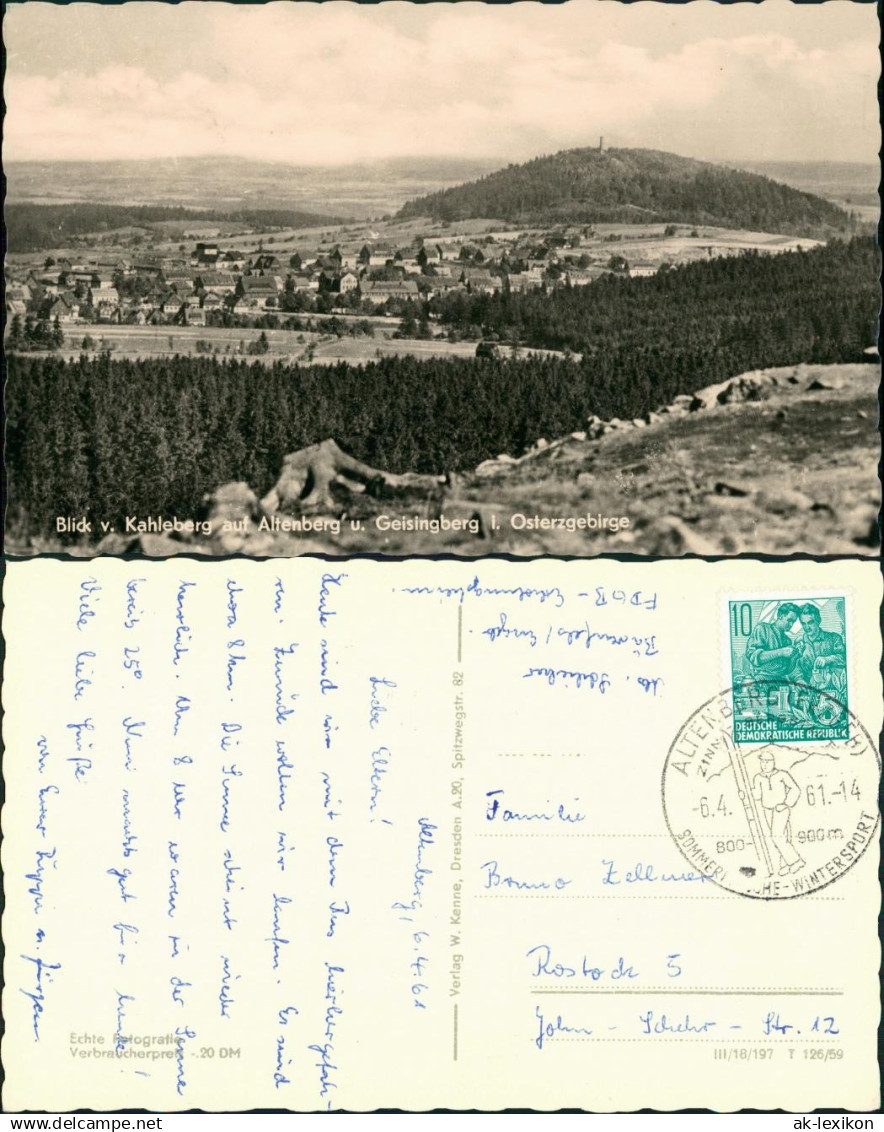 Blick v. Kahleberg auf Altenberg u. Geisingberg i. Osterzgebirge
Altenberg, 6.4.61
Liebe Eltern!
Heute sind wir mit dem Bus hierhergefah-
ren. Zurück wollen wir laufen. Es sind
etwa 8 km. Die Sonne scheint wieder
herrlich. Um 8 Uhr waren in der Sonne
bereits 25°. Nun macht's gut für heute!
Viele liebe Grüße
von Eurer Puppi u. Jürgen.
Echte Fotografie
Verbraucherpreis -.20 DM
Verlag W. Kenne, Dresden A.20, Spitzwegstr. 82
Bärenfels/Erzgeb.
FDGB-Erholungsheim.
10
DEUTSCHE
DEMOKRATISCHE REPUBLIK
ALTENBERG
-6.4.61.-14
800- 900m
SOMMERFRISCHE-WINTERSPORT
Familie
Bruno Zellmer
Rostock 5
John-Schehr-Str. 12
III/18/197 T 126/59
ak-lexikon
© ak-lexikon.com